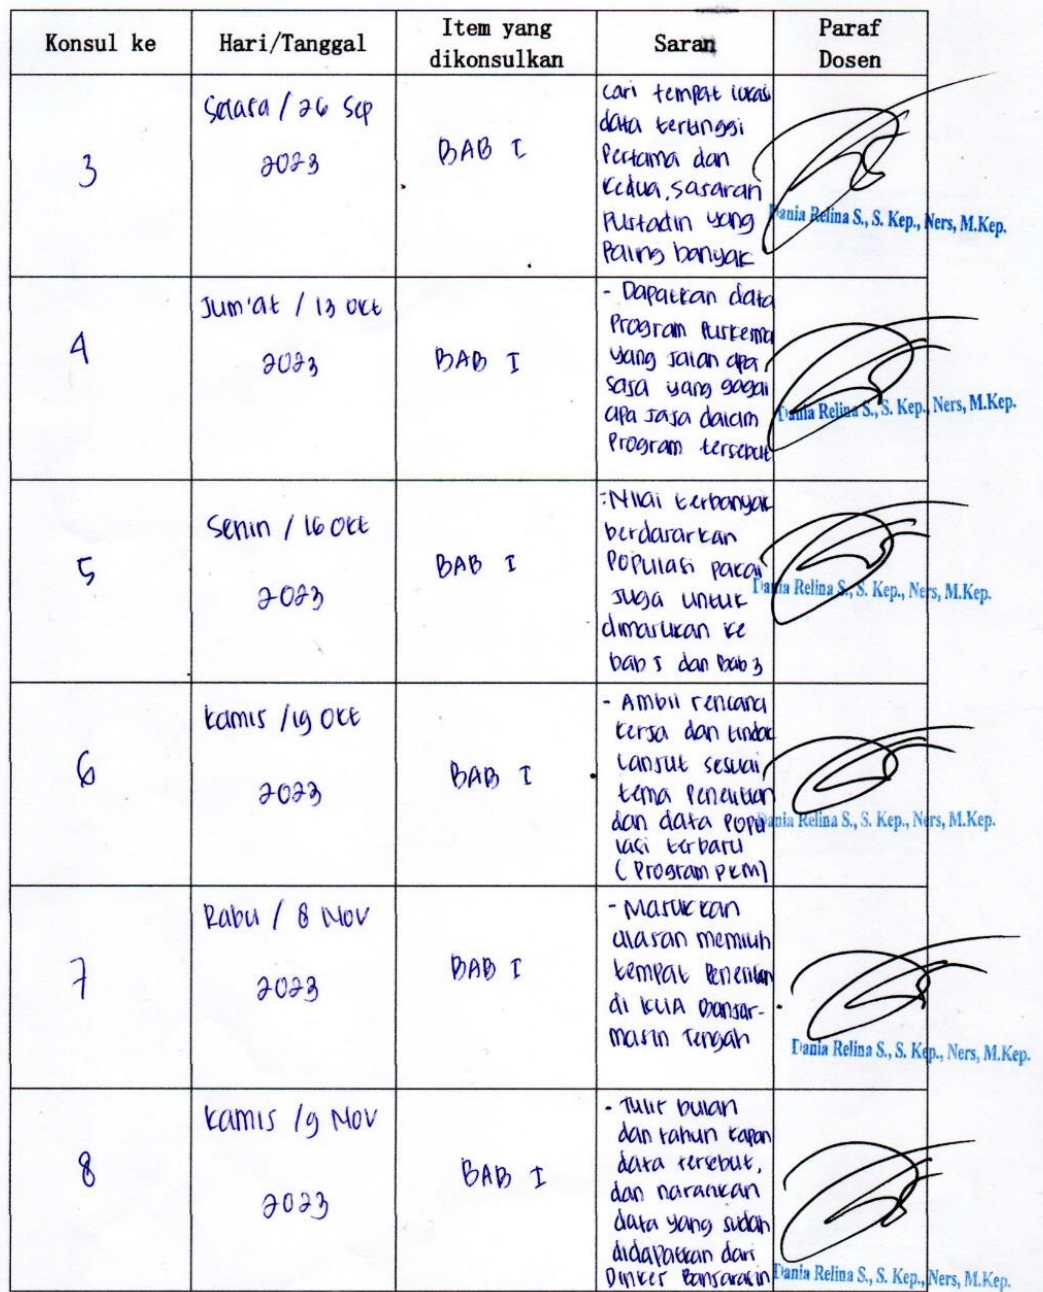 Konsul ke
Hari/Tanggal
Item yang
dikonsulkan
Saran
Paraf
Dosen
3
Selasa / 26 Sep
2023
BAB I
Cari tempat lokasi
data tertinggi
Pertama dan
Kedua, sasaran
Pustadin yang
Paling banyak
Dania Relina S., S. Kep., Ners, M.Kep.
4
Jum'at / 13 Okt
2023
BAB I
- Dapatkan data
Program Puskesma
yang jalan apa
saja yang gagal
apa saja dalam
Program tersebut
Dania Relina S., S. Kep., Ners, M.Kep.
5
Senin / 16 Okt
2023
BAB I
- Nilai terbanyak
berdasarkan
Populasi pakai
Juga untuk
dimasukan ke
bab 1 dan Bab 3
Dania Relina S., S. Kep., Ners, M.Kep.
6
Kamis / 19 Okt
2023
BAB I
- Ambil rencana
Kerja dan tindak
Lanjut sesuai
tema Penelitian
dan data Popu
lasi terbaru
( Program PKM)
Dania Relina S., S. Kep., Ners, M.Kep.
7
Rabu / 8 Nov
2023
BAB I
- Masukkan
alasan memilih
tempat Penelitian
di KUA Banjar-
masin Tengah
Dania Relina S., S. Kep., Ners, M.Kep.
8
Kamis / 9 Nov
2023
BAB I
- Tulis bulan
dan tahun kapan
data tersebut,
dan narasikan
data yang sudah
didapatkan dari
Dinkes Banjarmasin
Dania Relina S., S. Kep., Ners, M.Kep.